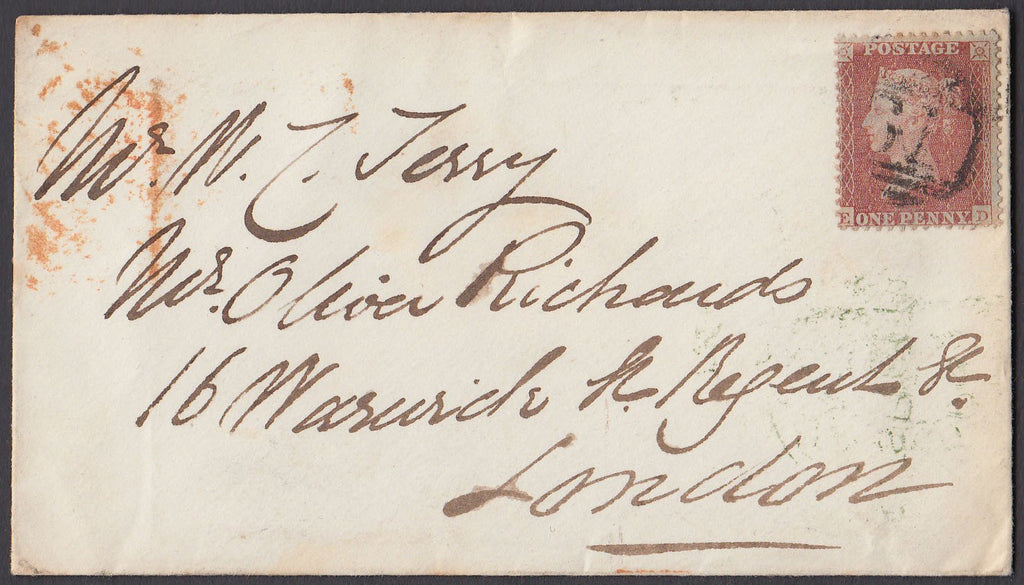 POSTAGE
E ONE PENNY D
Mr. W. T. Terry
Mr. Oliver Richards
16 Warwick St. Regent St.
London